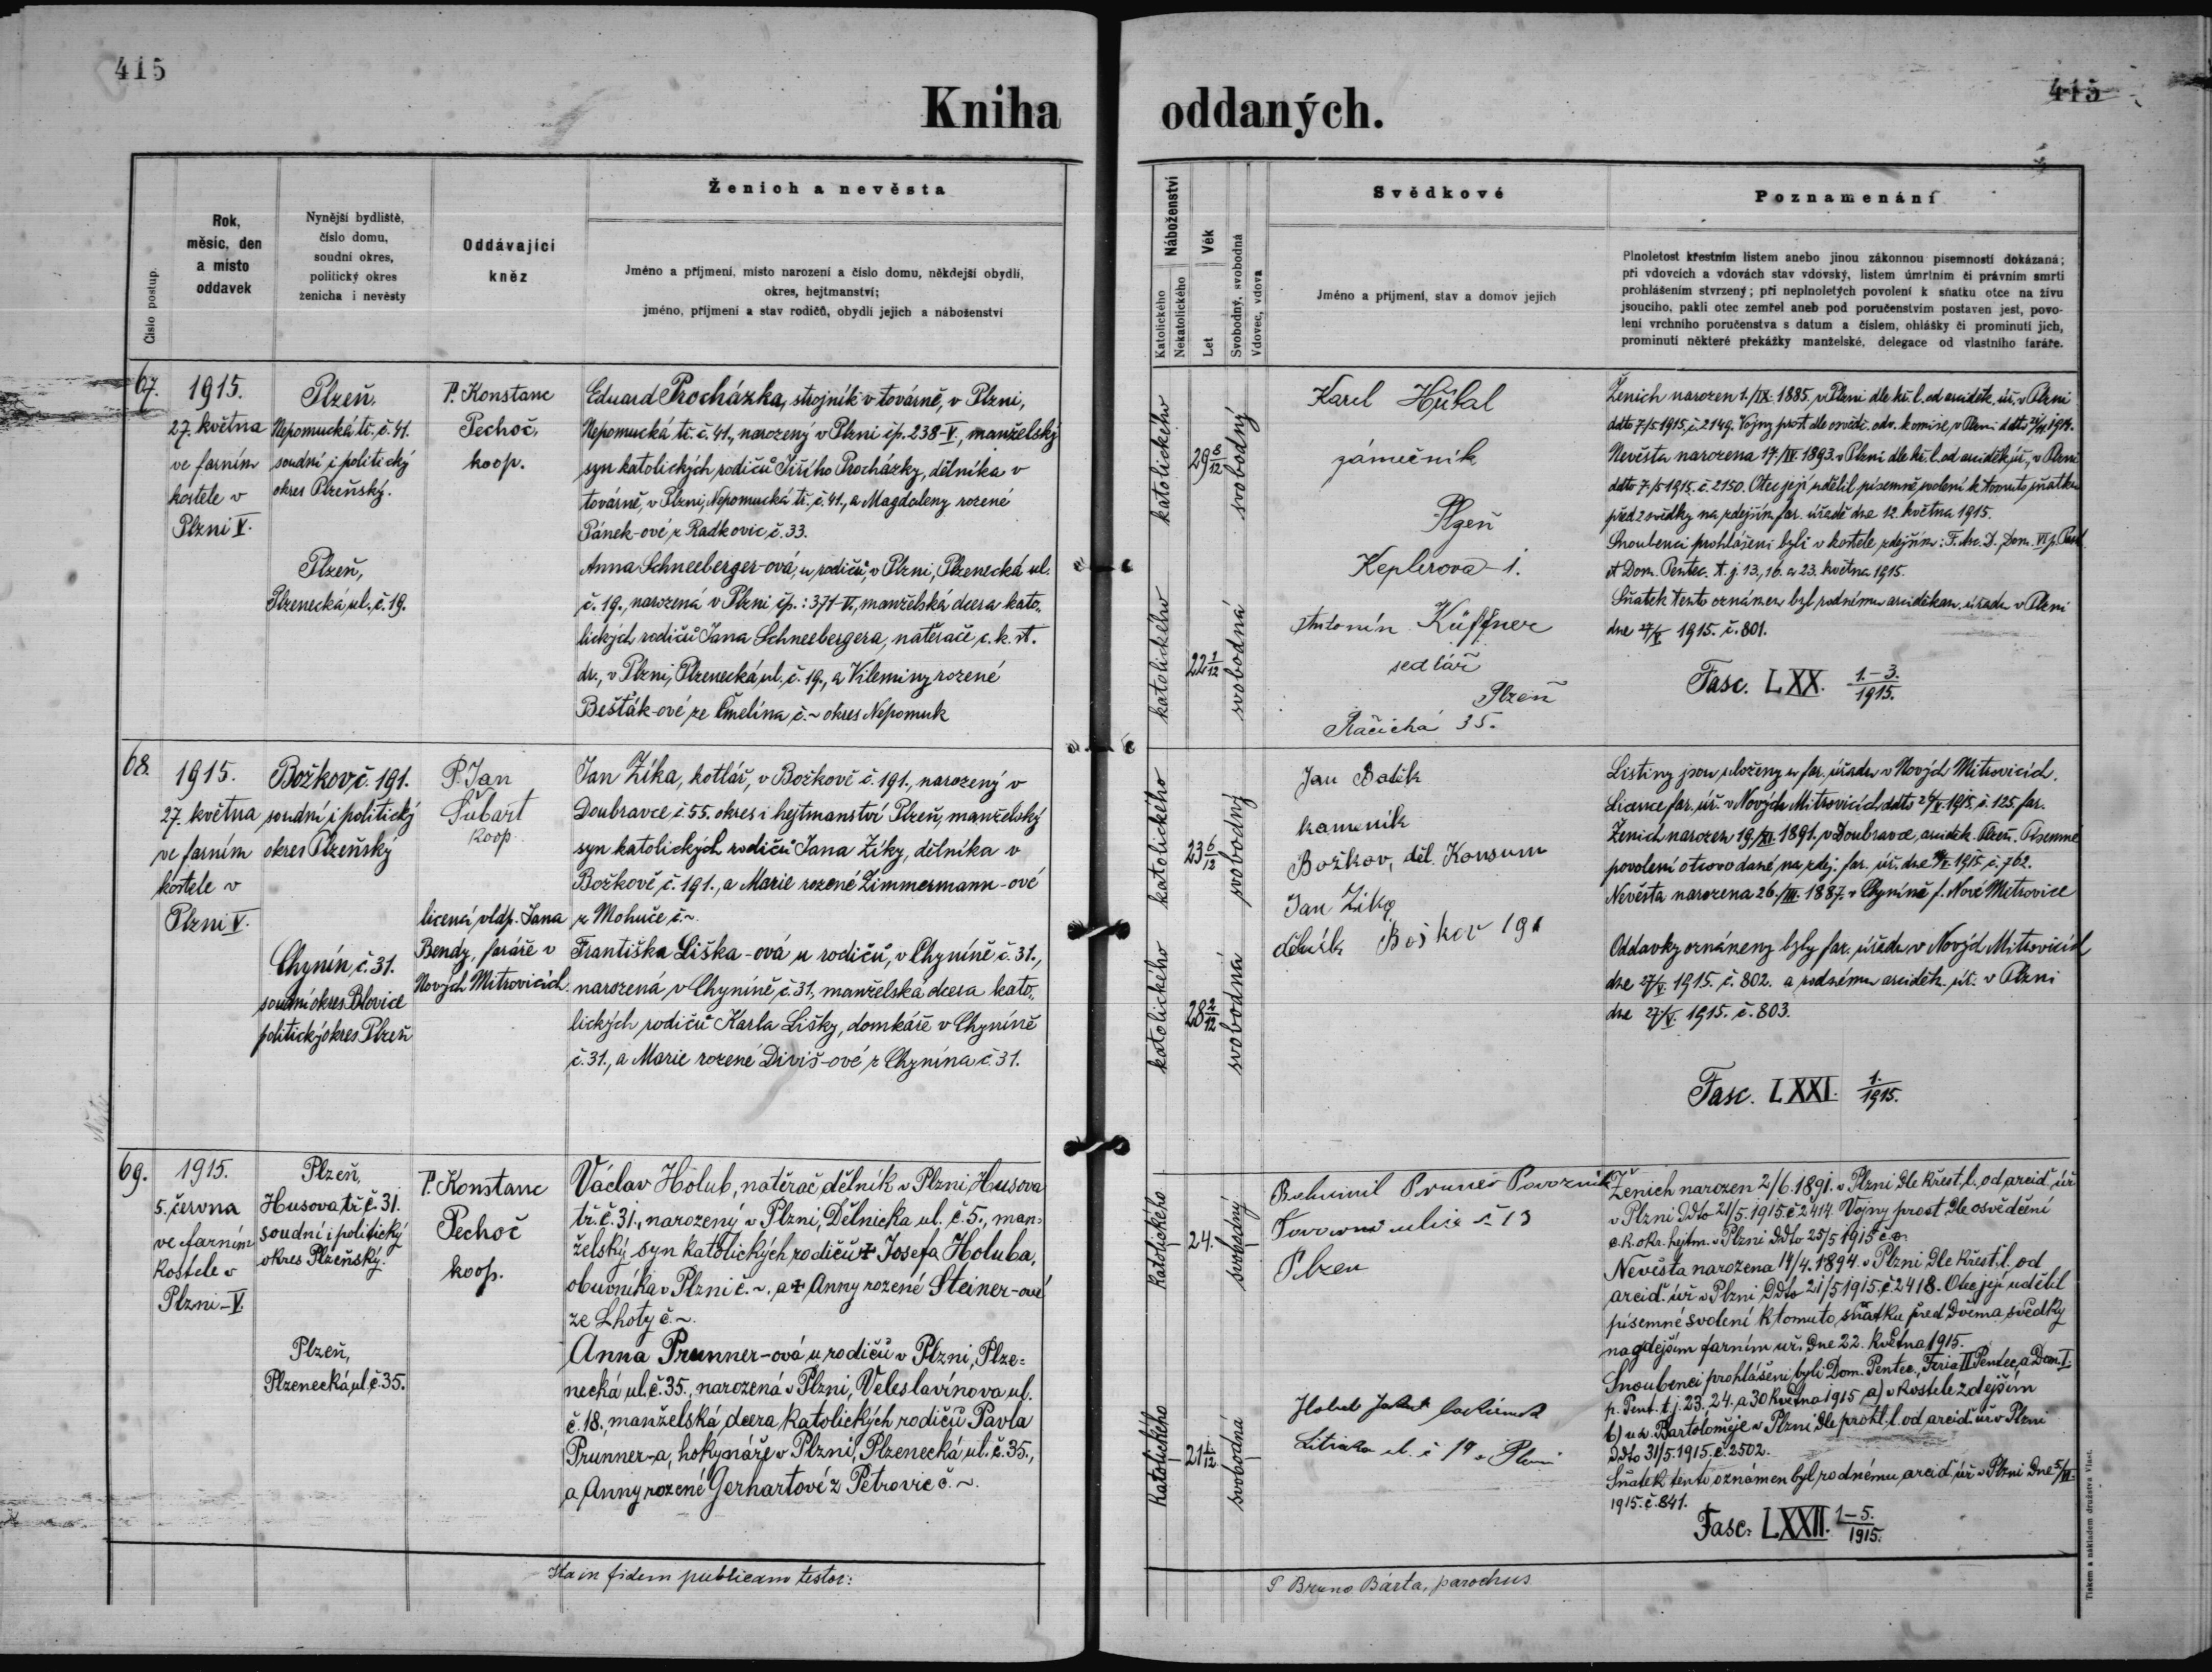 415
415
Kniha oddaných.
Číslo postup.
Rok,
měsíc, den
a místo
oddavek
Nynější bydliště,
číslo domu,
soudní okres,
politický okres
ženicha i nevěsty
Oddávající
kněz
Ženich a nevěsta
Jméno a příjmení, místo narození a číslo domu, někdejší obydlí,
okres, hejtmanství;
jméno, příjmení a stav rodičů, obydlí jejich a náboženství
Náboženství
Katolického
Nekatolického
Věk
Let
Svobodný, svobodná
Vdovec, vdova
Svědkové
Jméno a příjmení, stav a domov jejich
Poznamenání
Plnoletost křestním listem anebo jinou zákonnou písemností dokázaná;
při vdovcích a vdovách stav vdovský, listem úmrtním či právním smrti
prohlášením stvrzený; při neplnoletých povolení k sňatku otce na živu
jsoucího, pakli otec zemřel aneb pod poručenstvím postaven jest, povo-
lení vrchního poručenstva s datum a číslem, ohlášky či prominutí jich,
prominutí některé překážky manželské, delegace od vlastního faráře.
67.
1915.
27. května
ve farním
kostele v
Plzni V.
Plzeň,
Nepomucká tř. č. 41.
soudní i politický
okres Plzeňský.
Plzeň,
Plzenecká ul. č. 19.
P. Konstanc
Pechoč,
koop.
Eduard Procházka, strojník v továrně, v Plzni,
Nepomucká tř. č. 41., narozený v Plzni čp. 238-V., manželský
syn katolických rodičů Jiřího Procházky, dělníka v
továrně, v Plzni, Nepomucká tř. č. 41., a Magdaleny rozené
Pánek-ové z Radkovic, č. 33.
Anna Schneeberger-ová, u rodičů, v Plzni, Plzenecká ul.
č. 19., narozená v Plzni, čp.: 371-VI., manželská dcera kato-
lických rodičů Jana Schneebergera, natěrače c. k. st.
dr., v Plzni, Plzenecká ul. č. 19., a Vileminy rozené
Bešták-ové ze Čmelína, č. ~ okres Nepomuk
katolického
29 8/12
svobodný
katolického
22 1/12
svobodná
Karel Hůbal
zámečník
Plzeň
Keplerova 1.
Antonín Küffner
sedlář
Plzeň
35.
Ženich narozen 1./IX. 1885. v Plzni dle kř. l. od arciděk. úř. v Plzni
ddto 7/5 1915. č. 2149. Vojny prost dle osvědč. odv. komise, v Plzni ddto 1914.
Nevěsta narozena 17./IV. 1893. v Plzni dle kř. l. od arciděk. úř., v Plzni
ddto 7/5 1915. č. 2150. Otec její udělil písemné svolení k tomuto sňatku
před 2 svědky na zdejším far. úřadě dne 12. května 1915.
Snoubenci prohlášeni byli v kostele zdejším: F. Asc. D. Dom. VI p. Pasch.
et Dom. Pentec. t. j. 13., 16. a 23. května 1915.
Sňatek tento oznámen byl rodnému arciděkan. úřadu v Plzni
dne 27/V 1915. č. 801.
Fasc. LXX. 1.-3./1915.
68.
1915.
27. května
ve farním
kostele v
Plzni V.
Božkov č. 191.
soudní i politický
okres Plzeňský
Chynín, č. 31.
soudní okres Blovice
politický okres Plzeň
P. Jan
Šubart
koop.
licencí vldp. Jana
Bendy, faráře v
Nových Mitrovicích.
Jan Zíka, kotlář, v Božkově č. 191., narozený v
Doubravce č. 55. okres i hejtmanství Plzeň, manželský
syn katolických rodičů Jana Zíky, dělníka v
Božkově, č. 191., a Marie rozené Zimmermann-ové
z Mohuče č. ~.
Františka Liška-ová u rodičů, v Chyníně č. 31.,
narozená v Chyníně č. 31., manželská dcera kato-
lických rodičů Karla Lišky, domkáře v Chyníně
č. 31., a Marie rozené Diviš-ové z Chynína č. 31.
katolického
23 6/12
svobodný
katolického
28 2/12
svobodná
Jan
kameník
Božkov, děl. Konsum
Jan Zika
dělník Božkov 191
Listiny jsou uloženy u far. úřadu v Nových Mitrovicích.
Licence far. úř. v Nových Mitrovicích ddto 1915. č. 125 far.
Ženich narozen 19./XI. 1891. v Doubravce, arciděk. Plzeň. Písemné
povolení otcovo dané, na zdej. far. úř. dne 1915. č. 762.
Nevěsta narozena 26./III. 1887. v Chyníně f. Nové Mitrovice
Oddavky oznámeny byly far. úřadu v Nových Mitrovicích
dne 27/V. 1915. č. 802. a rodnému arciděk. úř. v Plzni
dne 27/V. 1915. č. 803.
Fasc. LXXI. 1./1915.
69.
1915.
5. června
ve farním
kostele v
Plzni-V.
Plzeň,
Husova tř. č. 31.
soudní i politický
okres Plzeňský.
Plzeň,
Plzenecká ul. č. 35.
P. Konstanc
Pechoč
koop.
Václav Holub, natěrač dělník v Plzni, Husova
tř. č. 31., narozený v Plzni, Dělnická ul. č. 5., man-
želský syn katolických rodičů ✝ Josefa Holuba,
obuvníka v Plzni č. ~. a ✝ Anny rozené Steiner-ové
ze Lhoty č. ~.
Anna Prunner-ová u rodičů v Plzni, Plze-
necká ul. č. 35., narozená v Plzni, Veleslavínova ul.
č. 18., manželská dcera katolických rodičů Pavla
Prunner-a, hokynáře v Plzni, Plzenecká ul. č. 35.,
a Anny rozené Gerhartové z Petrovic č. ~.
katolického
24.
svobodný
katolického
21 1/12
svobodná
Bohumil Pruner Povozník
ulice č. 13
Plzen
Holub
ul. č 19 v Plzni
Ženich narozen 2/6. 1891. v Plzni dle křest. l. od arciď. úř
v Plzni ddto 21/5. 1915. č. 2414. Vojny prost dle osvědčení
c. k. okr. hejtm. v Plzni ddto 25/5 1915 č. ~.
Nevěsta narozena 14/4. 1894. v Plzni dle křest. l. od
arciď. úř. v Plzni ddto 21/5 1915. č. 2418. Otec její udělil
písemné svolení k tomuto sňatku před dvěma svědky
na zdejším farním úř. dne 22. května 1915.
Snoubenci prohlášeni byli Dom. Pentec., Feria II Pentec., a Dom. I.
p. Pent. t. j. 23. 24. a 30 května 1915 a) v kostele zdejším
b) u sv. Bartoloměje v Plzni dle prohl. l. od arciď. úř. v Plzni
ddto 31/5. 1915. č. 2502.
Sňatek tento oznámen byl rodnému arciď. úř. v Plzni dne 5/VI.
1915. č. 841.
Fasc. LXXII. 1-5./1915.
Ita in fidem publicam testor:
P Bruno Bárta, parochus
Tiskem a nákladem družstva Vlasť.